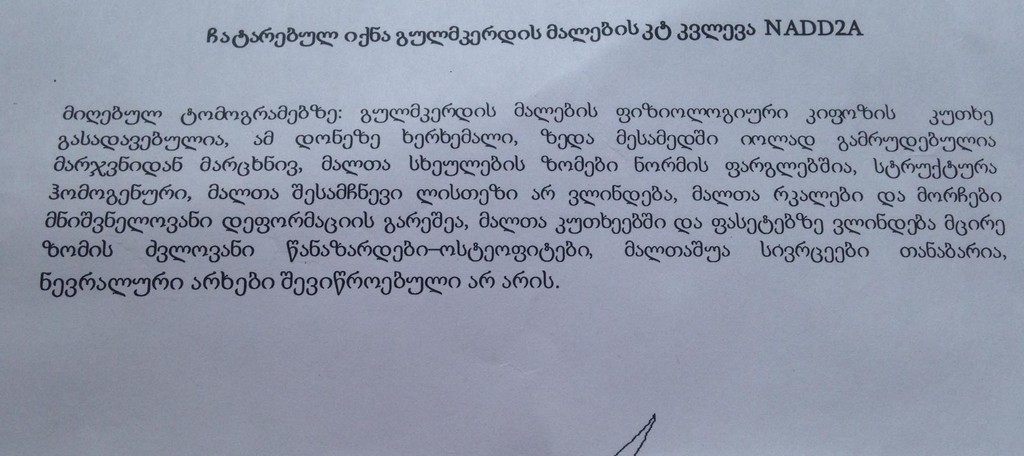 ჩატარებულ იქნა გულმკერდის მალების კტ კვლევა NADD2A
მიღებულ ტომოგრამებზე: გულმკერდის მალების ფიზიოლოგიური კიფოზის კუთხე
გასადავებულია, ამ დონეზე ხერხემალი, ზედა მესამედში იოლად გამრუდებულია
მარჯვნიდან მარცხნივ, მალთა სხეულების ზომები ნორმის ფარგლებშია, სტრუქტურა
ჰომოგენური, მალთა შესამჩნევი ლისთეზი არ ვლინდება, მალთა რკალები და მორჩები
მნიშვნელოვანი დეფორმაციის გარეშეა, მალთა კუთხეებში და ფასეტებზე ვლინდება მცირე
ზომის ძვლოვანი წანაზარდები–ოსტეოფიტები, მალთაშუა სივრცეები თანაბარია,
ნევრალური არხები შევიწროებული არ არის.